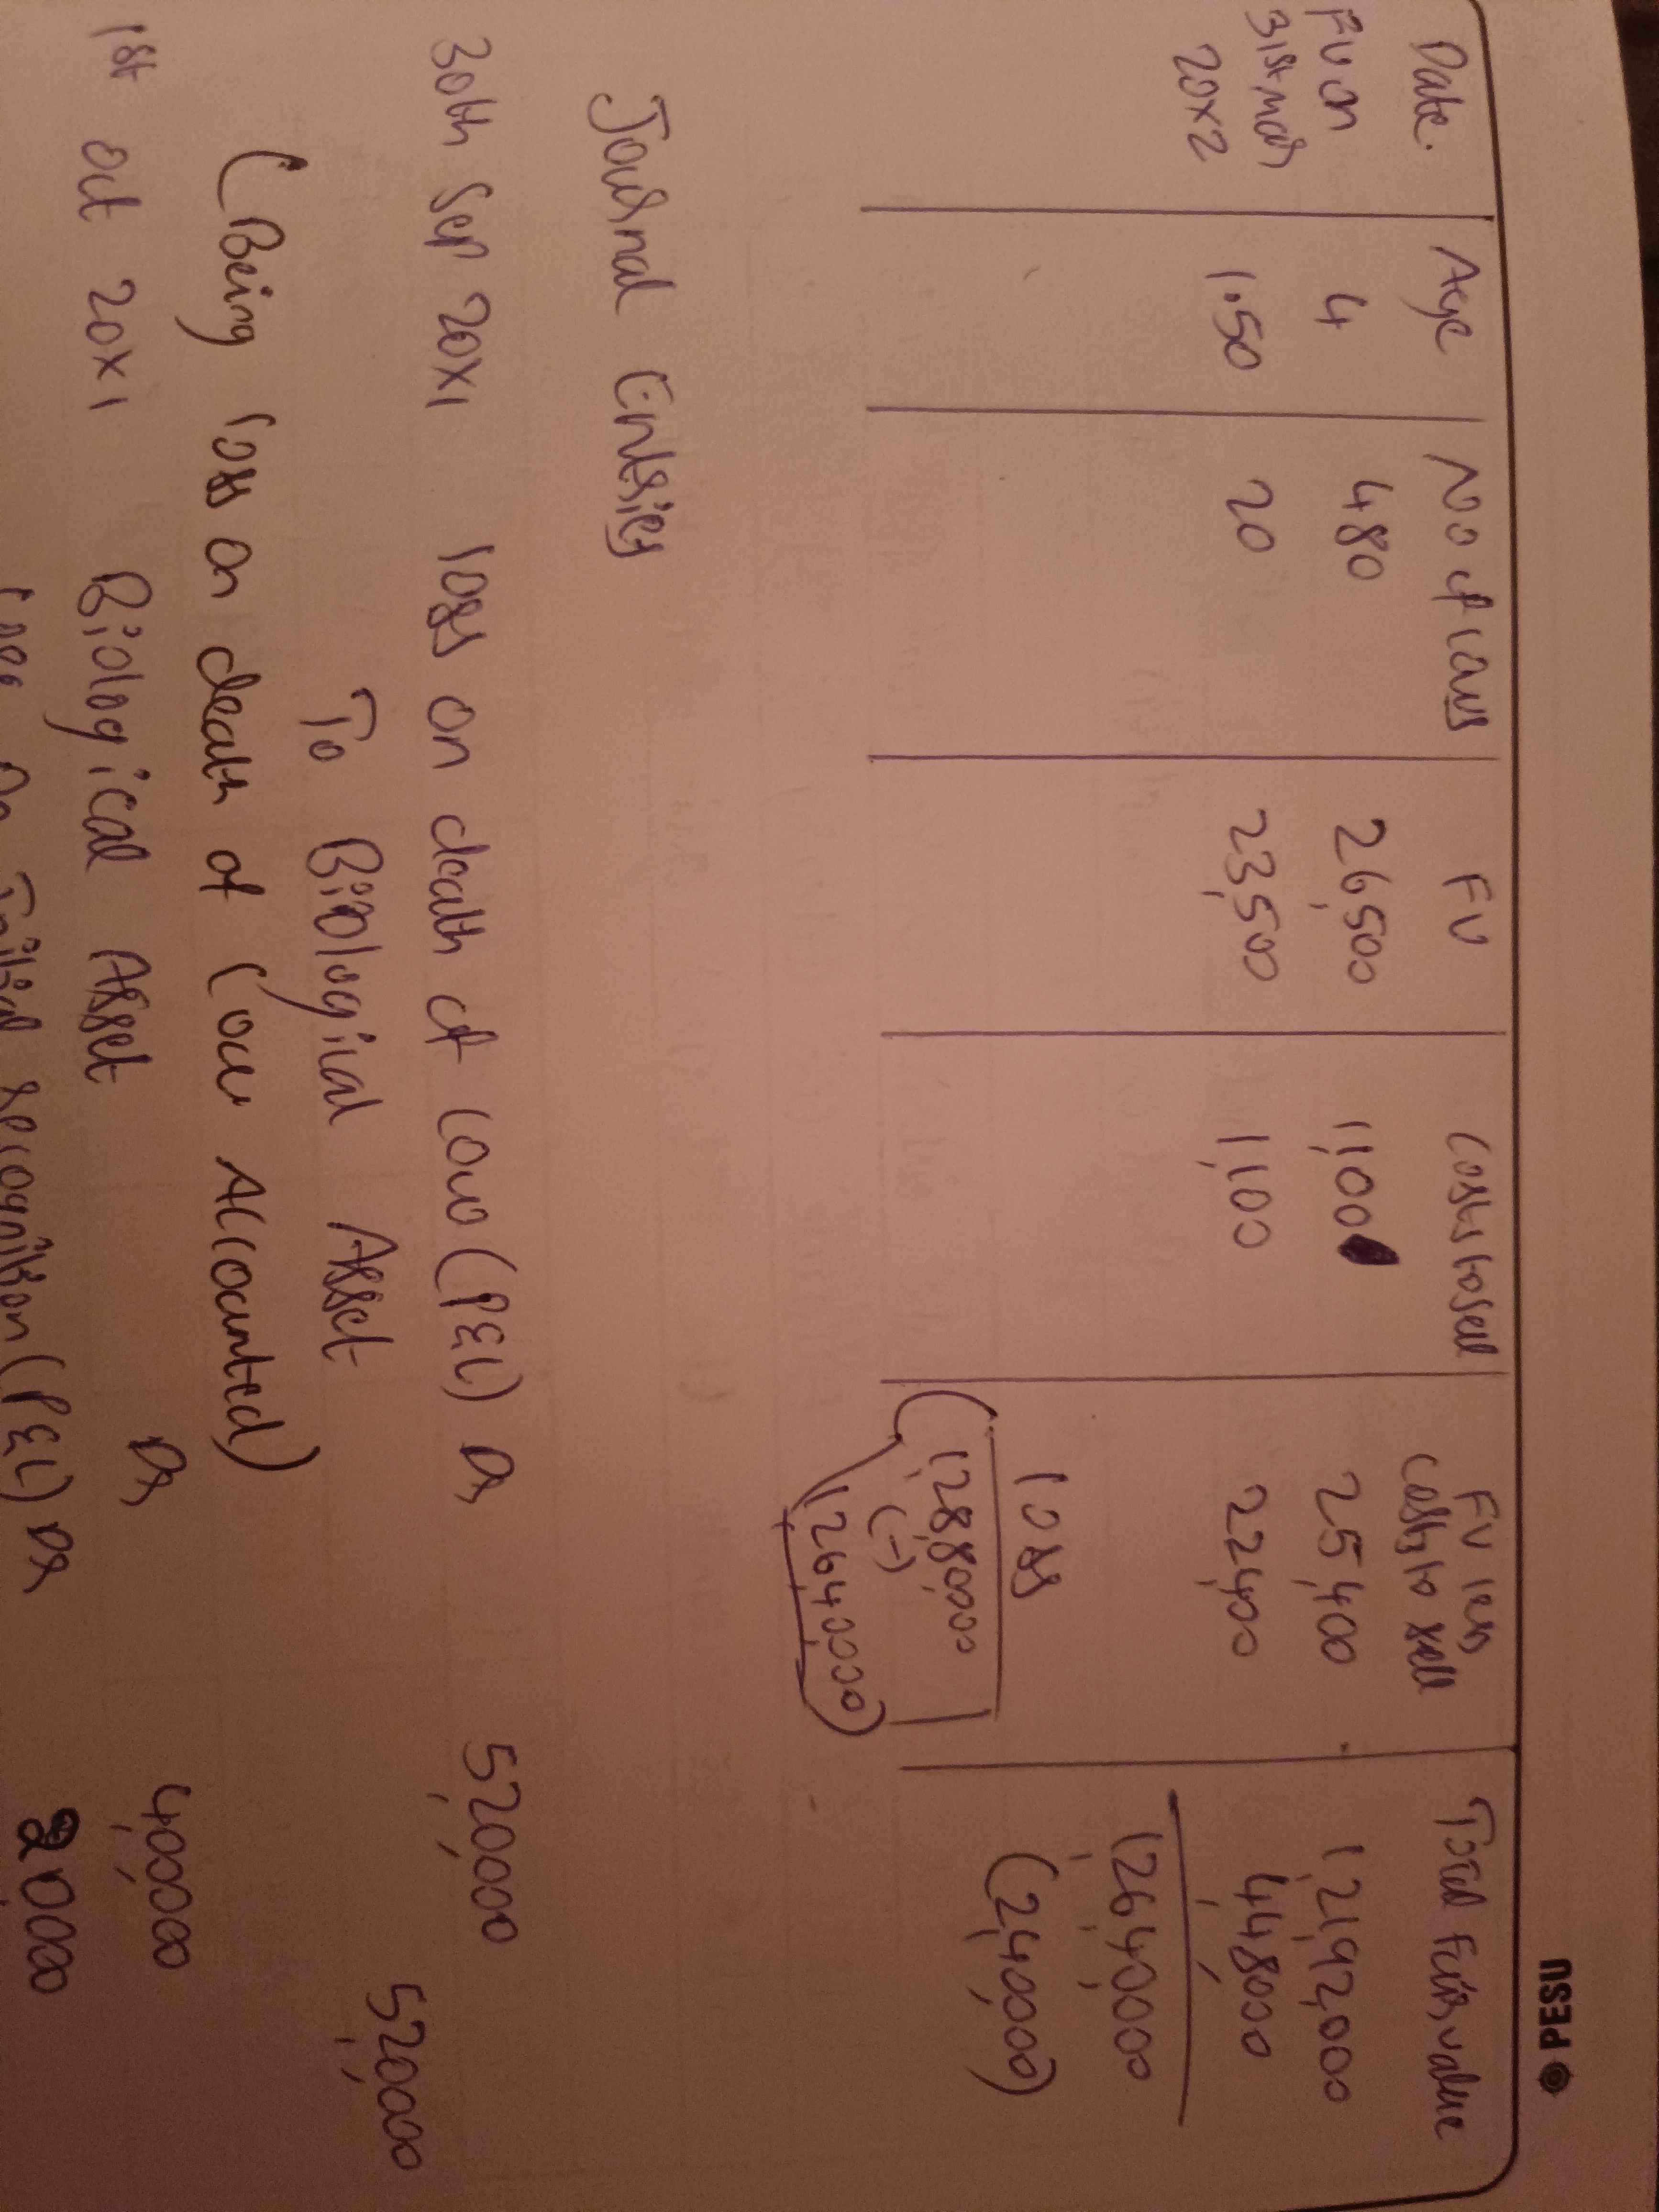 PESU
Date. Age No of cows FV Costs to sell FV less costs to sell Total Fair value
FV on 31st Mar 20x2 4 480 26,500 1,100 25,400 1,21,92,000
1.50 20 23,500 1,100 22,400 4,48,000
1,26,40,000
loss (2,40,000)
(1,28,80,000
(-)
1,26,40,000)
Journal Entries
30th Sep 20x1 loss on death of cow (P&L) Dr 5,20,000
To Biological Asset 5,20,000
(Being loss on death of Cow Accounted)
1st Oct 20x1 Biological Asset Dr 4,00,000
Loss on Initial recognition (P&L) Dr 20,000